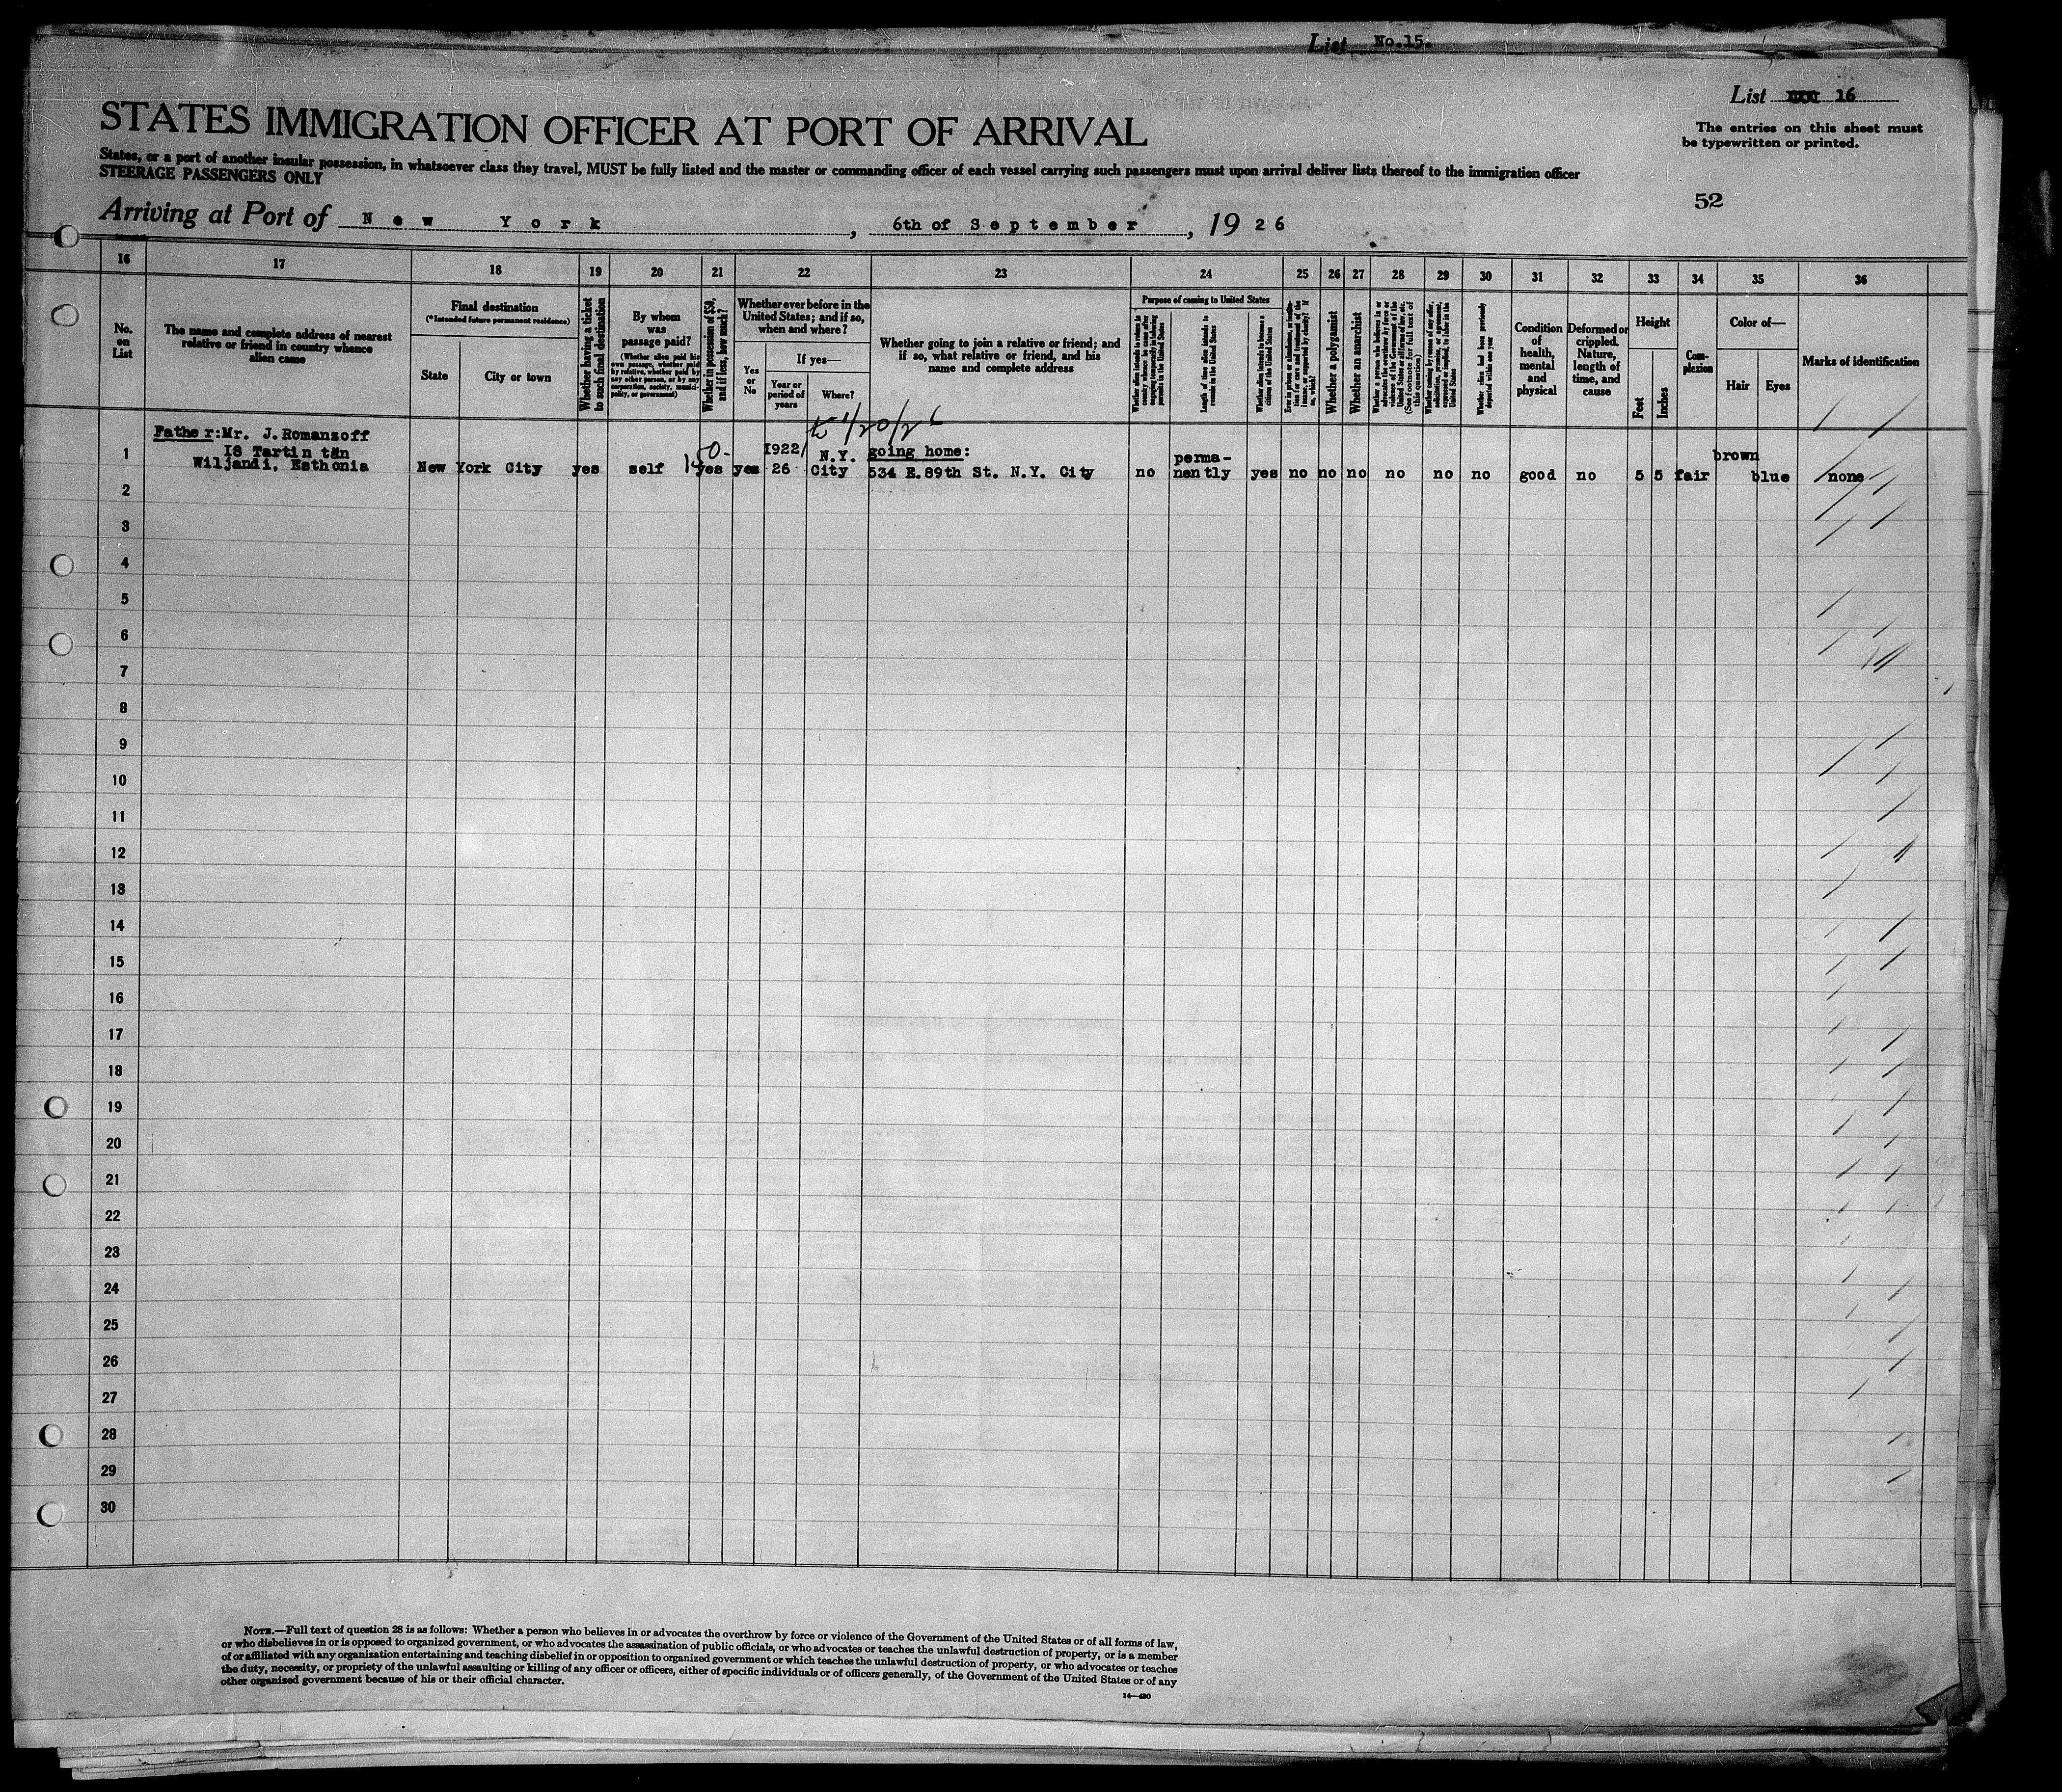 List No.15.
List 16
The entries on this sheet must
be typewritten or printed.
STATES IMMIGRATION OFFICER AT PORT OF ARRIVAL
States, or a port of another insular possession, in whatsoever class they travel, MUST be fully listed and the master or commanding officer of each vessel carrying such passengers must upon arrival deliver lists thereof to the immigration officer
STEERAGE PASSENGERS ONLY
52
Arriving at Port of New York, 6th of September, 1926
16 17 18 19 20 21 22 23 24 25 26 27 28 29 30 31 32 33 34 35 36
No.
on
List
The name and complete address of nearest
relative or friend in country whence
alien came
Final destination
(*Intended future permanent residence)
State
City or town
Whether having a ticket
to such final destination
By whom
was
passage paid?
(Whether alien paid his
own passage, whether paid
by relative, whether paid by
any other person, or by any
corporation, society, munici-
pality, or government)
Whether in possession of $50,
and if less, how much?
Whether ever before in the
United States; and if so,
when and where?
Yes
or
No
If yes—
Year or
period of
years
Where?
Whether going to join a relative or friend; and
if so, what relative or friend, and his
name and complete address
Purpose of coming to United States
Whether alien intends to return to
country whence he came after
engaging temporarily in laboring
pursuits in the United States
Length of time alien intends to
remain in the United States
Whether alien intends to become a
citizen of the United States
Whether a polygamist
Whether an anarchist
(See footnote for full text of
this question)
Whether alien had been previously
deported within one year
Condition
of
health,
mental
and
physical
Deformed or
crippled.
Nature,
length of
time, and
cause
Height
Feet
Inches
Com-
plexion
Color of—
Hair
Eyes
Marks of identification
4/20/26
Father:Mr. J.Romansoff
18 Tartin tän
Wiljandi, Esthonia
1 New York City yes self 150- yes yes 1922/ 26 N.Y. City going home:
534 E.89th St. N.Y. City no perma-
nently yes no no no no no no good no 5 5 fair brown blue none
2
3
4
5
6
7
8
9
10
11
12
13
14
15
16
17
18
19
20
21
22
23
24
25
26
27
28
29
30
NOTE.—Full text of question 28 is as follows: Whether a person who believes in or advocates the overthrow by force or violence of the Government of the United States or of all forms of law,
or who disbelieves in or is opposed to organized government, or who advocates the assassination of public officials, or who advocates or teaches the unlawful destruction of property, or is a member
of or affiliated with any organization entertaining and teaching disbelief in or opposition to organized government or which teaches the unlawful destruction of property, or who advocates or teaches
the duty, necessity, or propriety of the unlawful assaulting or killing of any officer or officers, either of specific individuals or of officers generally, of the Government of the United States or of any
other organized government because of his or their official character.
14—430